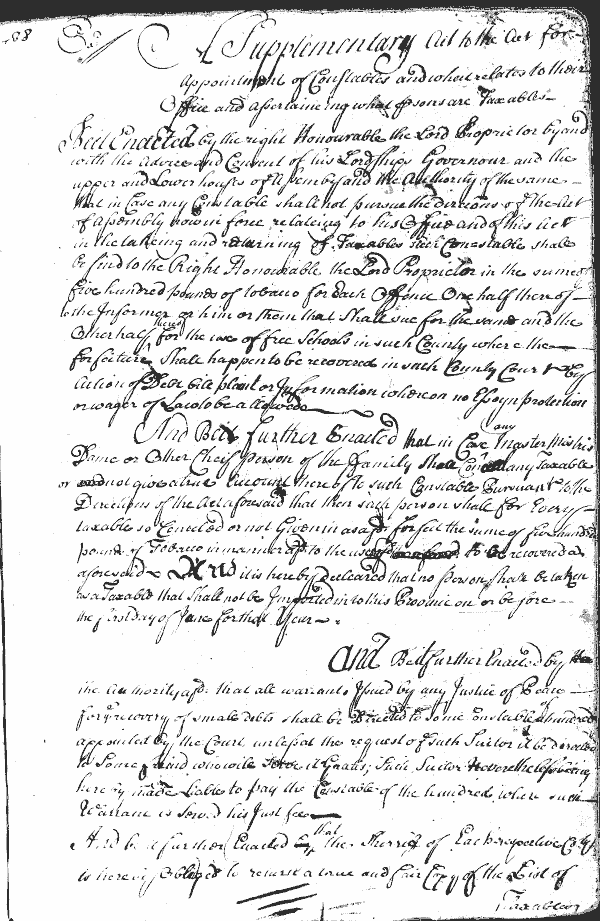 A Supplementary Act to the Act for
Appointment of Constables and what relates to their
Office and ascertaining what psons are Taxables
Beit Enacted by the right Honourable the Lord Proprietor by and
with the Advice and Consent of his Lordships Governour and the
upper and Lower houses of Assembly and the Authority of the same
that in Case any Constable shall not pursue the Directions of the Act
of Assembly now in force relateing to his Office and of this Act
in the takeing and returning of Taxables Such Constable shall
be fined to the Right Honourable the Lord Proprietor in the sume of
five hundred pounds of tobacco for Each Offence One half thereof
to the Informer or him or them that Shall sue for the same and the
Other half thereof for the use of free Schools in such County where the
forfeiture Shall happen to be recovered in such County Court by
Action of Debt bill plaint or Information wherein no Essoyn protection
or wager of Law to be allowed
And Beit further Enacted that in Case any Master Mistris
Dame or Other Cheif person of the family Shall any Taxable
or not give a true Account thereof to such Constable Pursuant to the
Directions of the Act aforesaid that then such person shall for Every
taxable so Concealed or not Given in as afd forfeit the sume of five hundred
pounds of Tobacco in manner afd to the use to be recovered as
aforesaid And it is hereby Declared that no person shall be taken
as a Taxable that shall not be Imported into this Province on or before
the first day of June for that Year
And Beit further Enacted by the
the Authority afd. that all warrants Issued by any Justice of Peace
for ye recovery of small debts shall be Directed to some Constable of hundred
appointed by the Court unless at the request of such Suitor it be directed
to Some friend who will Serve it Gratis, Such Suitor Nevertheless being
hereby made Liable to pay the Constable of the hundred where such
Warrant is Served his Just fee
And be it further Enacted that the Sherrif of Each respective County
is hereby Obliged to return a true and fair Copy of the List of
Taxables